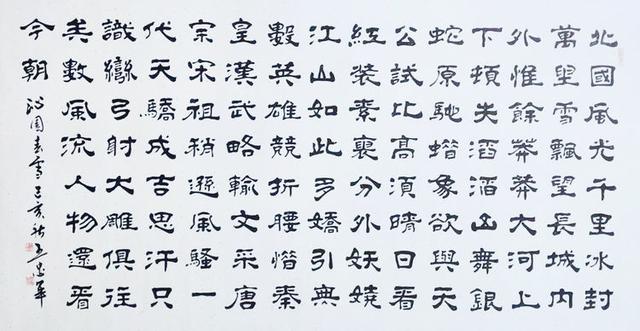 北國風光千里冰封
萬里雪飄望長城内
外惟餘莽莽大河上
下頓失滔滔山舞銀
蛇原馳蜡象欲與天
公試比高須晴日看
紅裝素裹分外妖嬈
江山如此多嬌引無
數英雄競折腰惜秦
皇漢武略輸文采唐
宗宋祖稍遜風騷一
代天驕成吉思汗只
識彎弓射大雕俱往
矣數風流人物還看
今朝
沁園春雪己亥秋